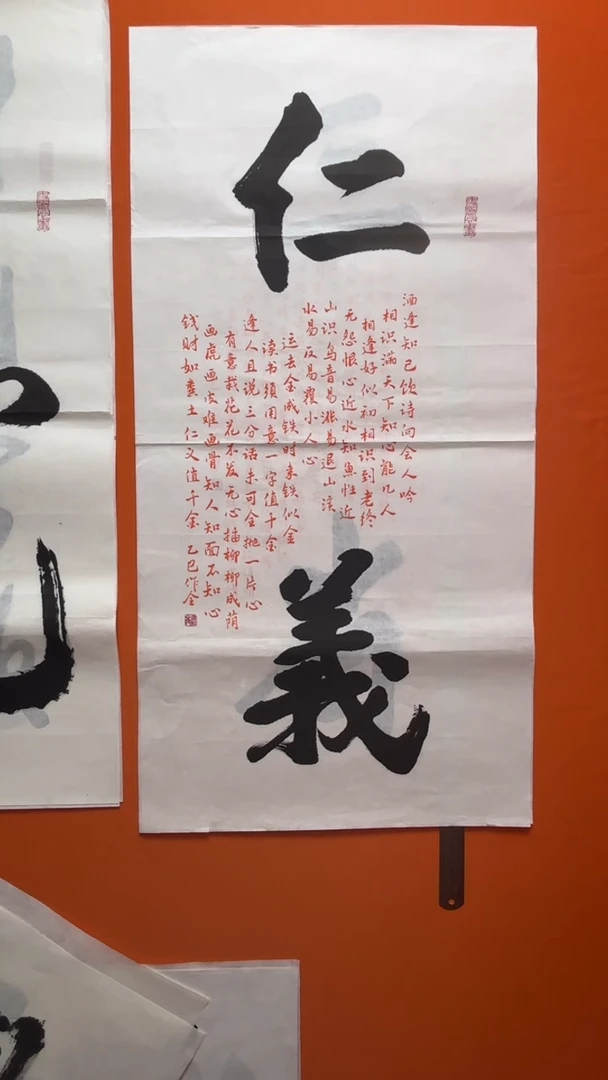 仁義
酒逢知己饮诗向会人吟
相识满天下知心能几人
相逢好似初相识到老终
无怨恨心近水知魚性近
山识鸟音易涨易退山溪
水易反易覆小人心
运去金成铁时来铁似金
读书须用意一字值千金
逢人且说三分话未可全抛一片心
有意栽花花不发无心插柳柳成荫
画虎画皮难画骨知人知面不知心
钱财如粪土仁义值千金 乙巳作全